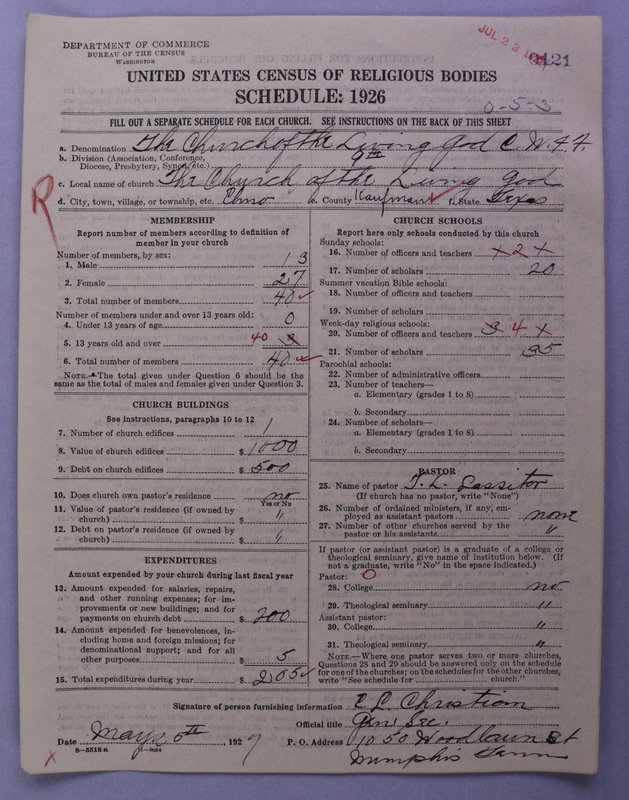 DEPARTMENT OF COMMERCE
BUREAU OF THE CENSUS
WASHINGTON
JUL 23
3121
UNITED STATES CENSUS OF RELIGIOUS BODIES
SCHEDULE: 1926
0-5-3
FILL OUT A SEPARATE SCHEDULE FOR EACH CHURCH. SEE INSTRUCTIONS ON THE BACK OF THIS SHEET
a. Denomination The Church of the Living God C. W. F. F.
b. Division (Association, Conference, Diocese, Presbytery, Synod, etc.) 9th
c. Local name of church The Church of the Living God
d. City, town, village, or township, etc. Elmo e. County Kaufman f. State Texas
R
MEMBERSHIP
Report number of members according to definition of member in your church
Number of members, by sex:
1. Male 13
2. Female 27
3. Total number of members 40
Number of members under and over 13 years old:
4. Under 13 years of age 0
5. 13 years old and over 40
6. Total number of members 40
NOTE.—The total given under Question 6 should be the
same as the total of males and females given under Question 3.
CHURCH BUILDINGS
See instructions, paragraphs 10 to 12
7. Number of church edifices 1
8. Value of church edifices $ 1000
9. Debt on church edifices $ 500
10. Does church own pastor's residence no
Yes or No
11. Value of pastor's residence (if owned by
church) $ "
12. Debt on pastor's residence (if owned by
church) $ "
EXPENDITURES
Amount expended by your church during last fiscal year
13. Amount expended for salaries, repairs,
and other running expenses; for im-
provements or new buildings; and for
payments on church debt $ 200
14. Amount expended for benevolences, in-
cluding home and foreign missions; for
denominational support; and for all
other purposes $ 5
15. Total expenditures during year $ 205
CHURCH SCHOOLS
Report here only schools conducted by this church
Sunday schools:
16. Number of officers and teachers x 2 x
17. Number of scholars 20
Summer vacation Bible schools:
18. Number of officers and teachers
19. Number of scholars
Week-day religious schools:
20. Number of officers and teachers 3 4 x
21. Number of scholars 35
Parochial schools:
22. Number of administrative officers
23. Number of teachers—
a. Elementary (grades 1 to 8)
b. Secondary
24. Number of scholars—
a. Elementary (grades 1 to 8)
b. Secondary
PASTOR
25. Name of pastor T. L. Lassitor
(If church has no pastor, write "None")
26. Number of ordained ministers, if any, em-
ployed as assistant pastors none
27. Number of other churches served by the
pastor or his assistants "
If pastor (or assistant pastor) is a graduate of a college or
theological seminary, give name of institution below. (If
not a graduate, write "No" in the space indicated.)
Pastor: 0
28. College no
29. Theological seminary "
Assistant pastor:
30. College "
31. Theological seminary "
NOTE.—Where one pastor serves two or more churches,
Questions 28 and 29 should be answered only on the schedule
for one of the churches; on the schedules for the other churches,
write "See schedule for church."
Signature of person furnishing information E L Christian
Official title Gen. Sec.
Date May 5th, 1927 P. O. Address 1050 Woodlawn St
Memphis Tenn
8-5518a 11-9064
x